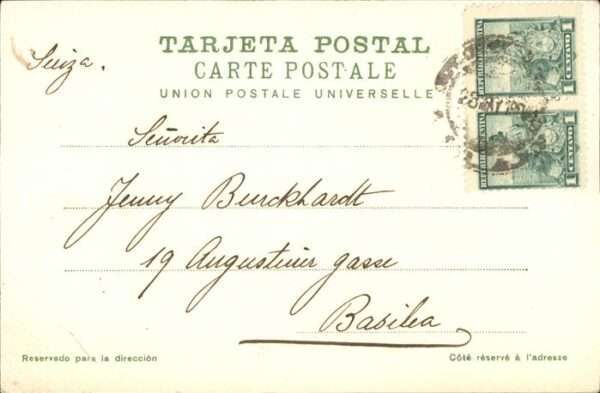 TARJETA POSTAL
CARTE POSTALE
UNION POSTALE UNIVERSELLE
Suiza.
REPUBLICA ARGENTINA
1 CENTAVO 1
REPUBLICA ARGENTINA
1 CENTAVO 1
Señorita
Jenny Burckhardt
19 Augustiner gasse
Basilea
Reservado para la dirección
Côté réservé à l'adresse